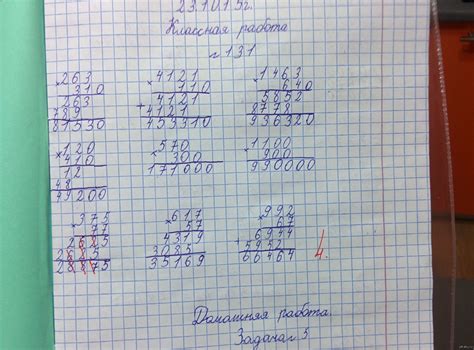 23.10.15г.
Классная работа
№ 131
×263
310
263
789
81530
×4121
110
+4121
4121
453310
×1463
640
5852
8778
936320
×120
410
12
48
49200
×570
300
171000
×1100
900
990000
×375
77
2625
28875
×617
57
4319
3085
35169
×992
67
+6944
5952
66464
4.
Домашняя работа.
Задача № 5